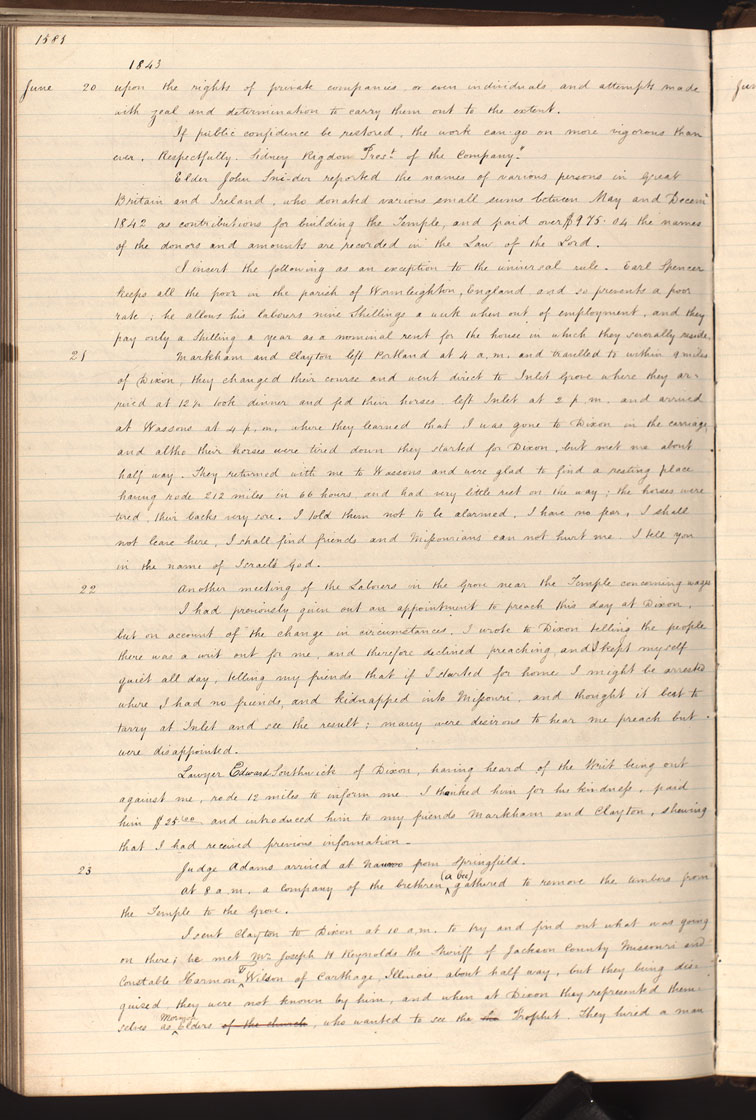 1585
1843
June 20 upon the rights of private companies, or even individuals, and attempts made
with zeal and determination to carry them out to the extent.
If public confidence be restored, the work can go on more vigorous than
ever. Respectfully. Sidney Rigdom "Prest. of the Company."
Elder John Snider reported the names of various persons in Great
Britain and Ireland, who donated various small sums between May and Decem
1842 as contributions for building the Temple, and paid over $975.04 the names
of the donors and amounts are recorded in the Law of the Lord.
I insert the following as an exception to the universal rule. Earl Spencer
keeps all the poor in the parish of Wormleighton, England and so prevents a poor
rate; he allows his labourers nine Shillings a week when out of employment, and they
pay only a Shilling a year as a nominal rent for the house in which they severally reside
21 Markham and Clayton left Portland at 4 a.m. and travelled to within 9 miles
of Dixon, they changed their course and went direct to Inlet Grove where they ar-
rived at 12, took dinner and fed their horses left Inlet at 2 p.m. and arrived
at Wassons at 4 p.m, where they learned that I was gone to Dixon in the carriage
and altho their horses were tired down they started for Dixon, but met me about
half way. They returned with me to Wassons and were glad to find a resting place
having rode 212 miles in 66 hours, and had very little rest on the way; the horses were
tired, their backs very sore. I told them not to be alarmed. I have no fear, I shall
not leave here, I shall find friends and Missourians can not hurt me. I tell you
in the name of Israel's God.
22 Another meeting of the Laborers in the Grove near the Temple concerning wages
I had previously given out an appointment to preach this day at Dixon,
but on account of the change in circumstances. I wrote to Dixon telling the people
there was a writ out for me, and therefore declined preaching, and I kept myself
quiet all day, telling my friends that if I started for home I might be arrested
where I had no friends, and kidnapped into Missouri, and thought it best to
tarry at Inlet and see the result; many were desirous to hear me preach but
were disappointed.
Lawyer Edward Southwick of Dixon, having heard of the Writ being out
against me, rode 12 miles to inform me. I thanked him for his kindness, paid
him $25.00 and introduced him to my friends Markham and Clayton, shewing
that I had received previous information.
23 Judge Adams arrived at Nauvoo from Springfield.
At 8 a.m. a company of the brethren (a bee) gathered to remove the timbers from
the Temple to the Grove.
I sent Clayton to Dixon at 10 a.m. to try and find out what was going
on there; he met Mr. Joseph H Reynolds the Sheriff of Jackson County Missouri and
Constable Harmon T Wilson of Carthage, Illinois about half way, but they being dis-
guised, they were not known by him, and when at Dixon they represented them-
selves as Mormon Elders of the church, who wanted to see the the Prophet. They hired a man